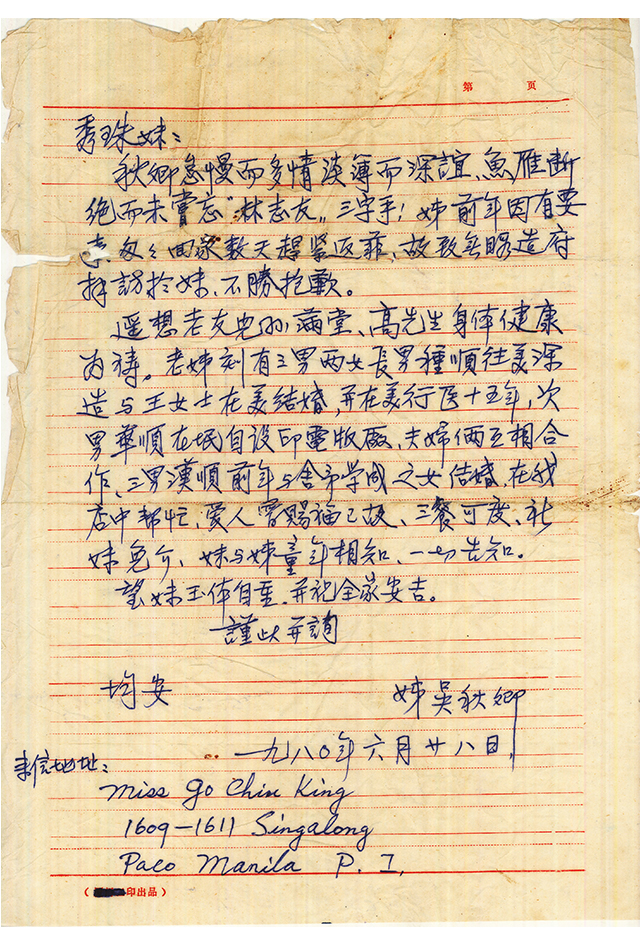 第 页
秀珠妹：
秋卿怠慢而多情淡薄而深誼、魚雁断
绝而未嘗忘“林志友„三字乎！姊前年因有要
匆々回家数天趕緊返菲、故致無暇造府
拜訪於妹、不勝抱歉。
遥想老友兒孙满堂、高先生身体健康
为祷。老姊刻有三男两女長男種順往美深
造与王女士在美结婚，并在美行医十五年，次
男華順在岷自设印電版廠、夫婦俩互相合
作、三男漢順前年与舍予学成之女结婚、在我
店中帮忙、爱人曾赐福已故、三餐可度、祈
妹免介、妹与姊童年相知、一切告知。
望妹玉体自重、并祝全家安吉。
謹此并詢
均安 姊吴秋卿
一九八〇年六月廿八日
来信地址：
Miss Go Chiu King
1609-1611 Singalong
Paco Manila P. I.
（ 印出品）